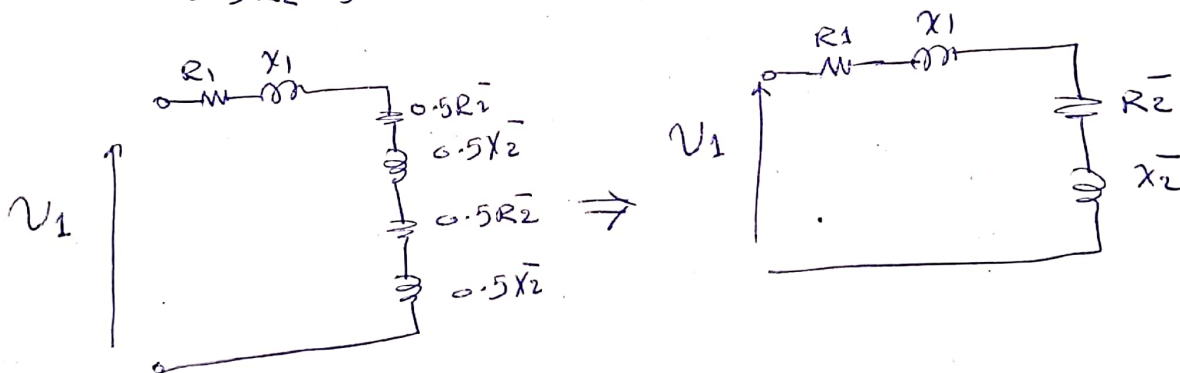 R1 X1
0.5R2̄
0.5X2̄
0.5R2̄
0.5X2̄
V1
⇒
R1 X1
R2̄
X2̄
V1